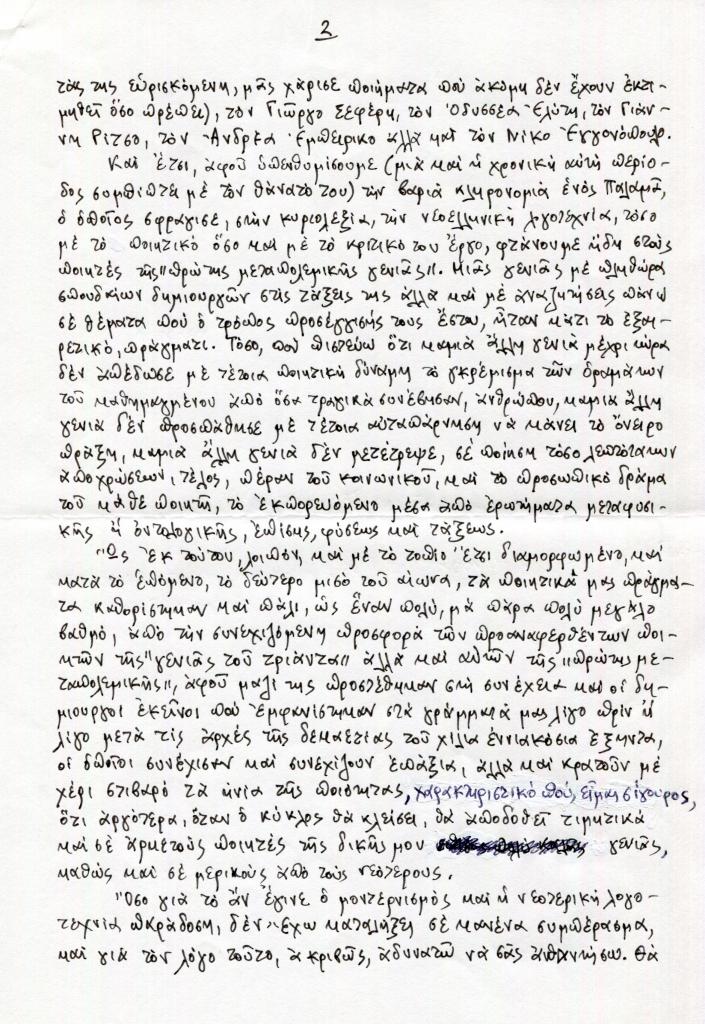 2
τὰς της εὑρισκόμενη, μᾶς χάρισε ποιήματα ποὺ ἀκόμη δὲν ἔχουν ἐκτι-
μηθεῖ ὅσο πρέπει), τὸν Γιῶργο Σεφέρη, τὸν Ὀδυσσέα Ἐλύτη, τὸν Γιάν-
νη Ρίτσο, τὸν Ἀνδρέα Ἐμπειρίκο ἀλλὰ καὶ τὸν Νίκο Ἐγγονόπουλο.
Καὶ ἔτσι, ἀφοῦ ὑπενθυμίσουμε (μιὰ καὶ ἡ χρονικὴ αὐτὴ περίο-
δος συμπίπτει μὲ τὸν θάνατό του) τὴν βαριὰ κληρονομιὰ ἑνὸς Παλαμᾶ,
ὁ ὁποῖος σφράγισε, στὴν κυριολεξία, τὴν νεοελληνικὴ λογοτεχνία, τόσο
μὲ τὸ ποιητικὸ ὅσο καὶ μὲ τὸ κριτικό του ἔργο, φτάνουμε ἤδη στοὺς
ποιητὲς τῆς "πρώτης μεταπολεμικῆς γενιᾶς". Μιᾶς γενιᾶς μὲ πληθώρα
σπουδαίων δημιουργῶν στὶς τάξεις της ἀλλὰ καὶ μὲ ἀναζητήσεις πάνω
σὲ θέματα ποὺ ὁ τρόπος προσέγγισής τους ἔστω, ἦταν κάτι τὸ ἐξαι-
ρετικό, πράγματι. Τόσο, ποὺ πιστεύω ὅτι καμιὰ ἄλλη γενιὰ μέχρι τώρα
δὲν ἀπέδωσε μὲ τέτοια ποιητικὴ δύναμη τὸ γκρέμισμα τῶν ὁραμάτων
τοῦ καθημαγμένου ἀπὸ ὅσα τραγικὰ συνέβησαν, ἀνθρώπου, καμιὰ ἄλλη
γενιὰ δὲν προσπάθησε μὲ τέτοια αὐταπάρνηση νὰ κάνει τὸ ὄνειρο
πράξη, καμιὰ ἄλλη γενιὰ δὲν μετέτρεψε, σὲ ποίηση τόσο λεπτότατων
ἀποχρώσεων, τέλος, πέραν τοῦ κοινωνικοῦ, καὶ τὸ προσωπικὸ δράμα
τοῦ κάθε ποιητῆ, τὸ ἐκπορευόμενο μέσα ἀπὸ ἐρωτήματα μεταφυσι-
κῆς ἢ ὀντολογικῆς, ἐπίσης, φύσεως καὶ τάξεως.
Ὡς ἐκ τούτου, λοιπόν, καὶ μὲ τὸ τοπίο ἔτσι διαμορφωμένο, καὶ
κατὰ τὸ ἑπόμενο, τὸ δεύτερο μισὸ τοῦ αἰώνα, τὰ ποιητικά μας πράγμα-
τα καθορίστηκαν καὶ πάλι, ὡς ἕναν πολύ, μὰ πάρα πολὺ μεγάλο
βαθμό, ἀπὸ τὴν συνεχιζόμενη προσφορὰ τῶν προαναφερθέντων ποι-
ητῶν τῆς "γενιᾶς τοῦ τριάντα" ἀλλὰ καὶ αὐτῶν τῆς "πρώτης με-
ταπολεμικῆς", ἀφοῦ μαζί της προστέθηκαν στὴ συνέχεια καὶ οἱ δη-
μιουργοὶ ἐκεῖνοι ποὺ ἐμφανίστηκαν στὰ γράμματά μας λίγο πρὶν ἢ
λίγο μετὰ τὶς ἀρχὲς τῆς δεκαετίας τοῦ χίλια ἐννιακόσια ἑξήντα,
οἱ ὁποῖοι συνέχισαν καὶ συνεχίζουν ἐπάξια, ἀλλὰ καὶ κρατοῦν μὲ
χέρι στιβαρὸ τὰ ἡνία τῆς ποιότητας, χαρακτηριστικὸ πού, εἶμαι σίγουρος,
ὅτι ἀργότερα, ὅταν ὁ κύκλος θὰ κλείσει, θὰ ἀποδοθεῖ τιμητικὰ
καὶ σὲ ἀρκετοὺς ποιητὲς τῆς δικῆς μου γενιᾶς,
καθὼς καὶ σὲ μερικοὺς ἀπὸ τοὺς νεότερους.
Ὅσο γιὰ τὸ ἂν ἔγινε ὁ μοντερνισμὸς καὶ ἡ νεοτερικὴ λογο-
τεχνία παράδοση, δὲν ἔχω καταλήξει σὲ κανένα συμπέρασμα,
καὶ γιὰ τὸν λόγο τοῦτο, ἀκριβῶς, ἀδυνατῶ νὰ σᾶς ἀπαντήσω. Θὰ